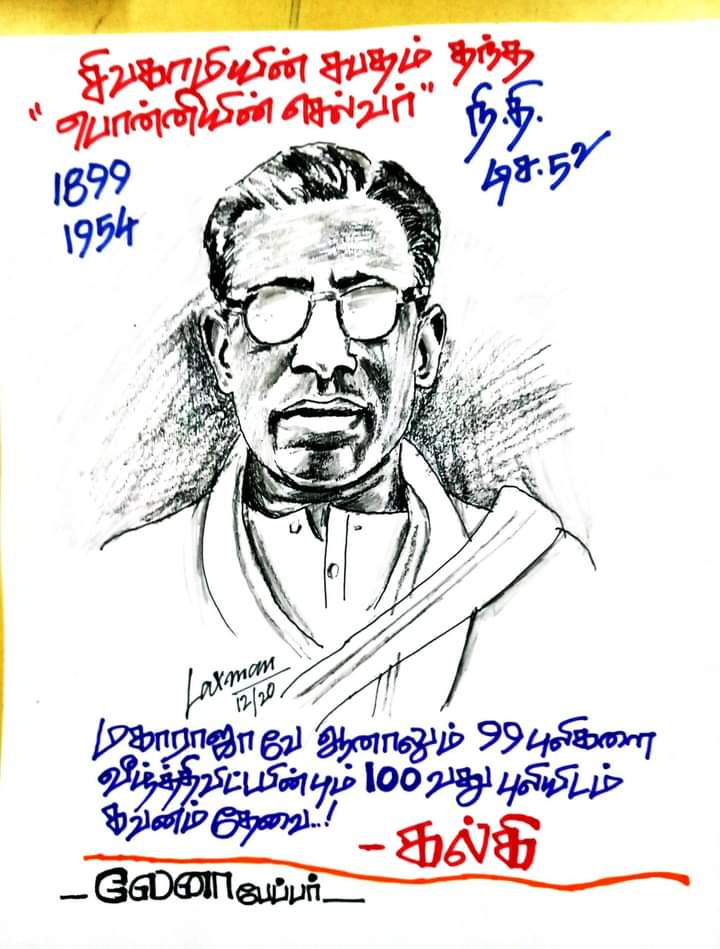 சிவகாமியின் சபதம் தந்த
"பொன்னியின் செல்வர்"
நி.தி.
டிச.52
1899
1954
Laxman
12/20
மகாராஜாவே ஆனாலும் 99 புலிகளை
வீழ்த்திவிட்டபின்பும் 100 வது புலியிடம்
கவனம் தேவை..!
- கல்கி
- லேனா பேப்பர் -